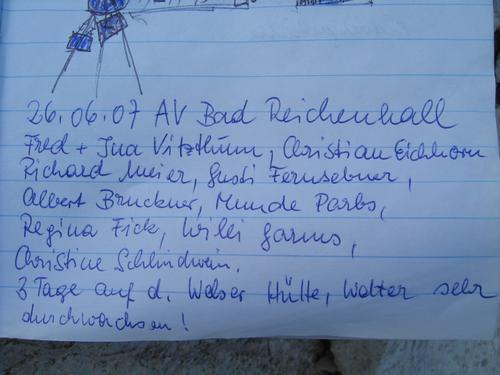 26.06.07 AV Bad Reichenhall
Fred + Ina Vitzthum, Christian Eichhorn
Richard Meier, Gusti Fernsebner,
Albert Bruckner, Munde Parbs,
Regina Fick, Willi Garms,
Christine Schlindwein.
3 Tage auf d. Welser Hütte, Wetter sehr
durchwachsen!